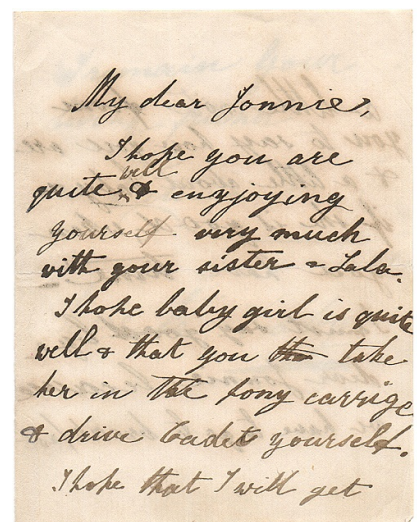 My dear Jonnie,
I hope you are
quite well & engjoying
yourself very much
with your sister & Lala.
I hope baby girl is quite
well & that you take
her in the pony carrige
& drive Cadet yourself.
I hope that I will get